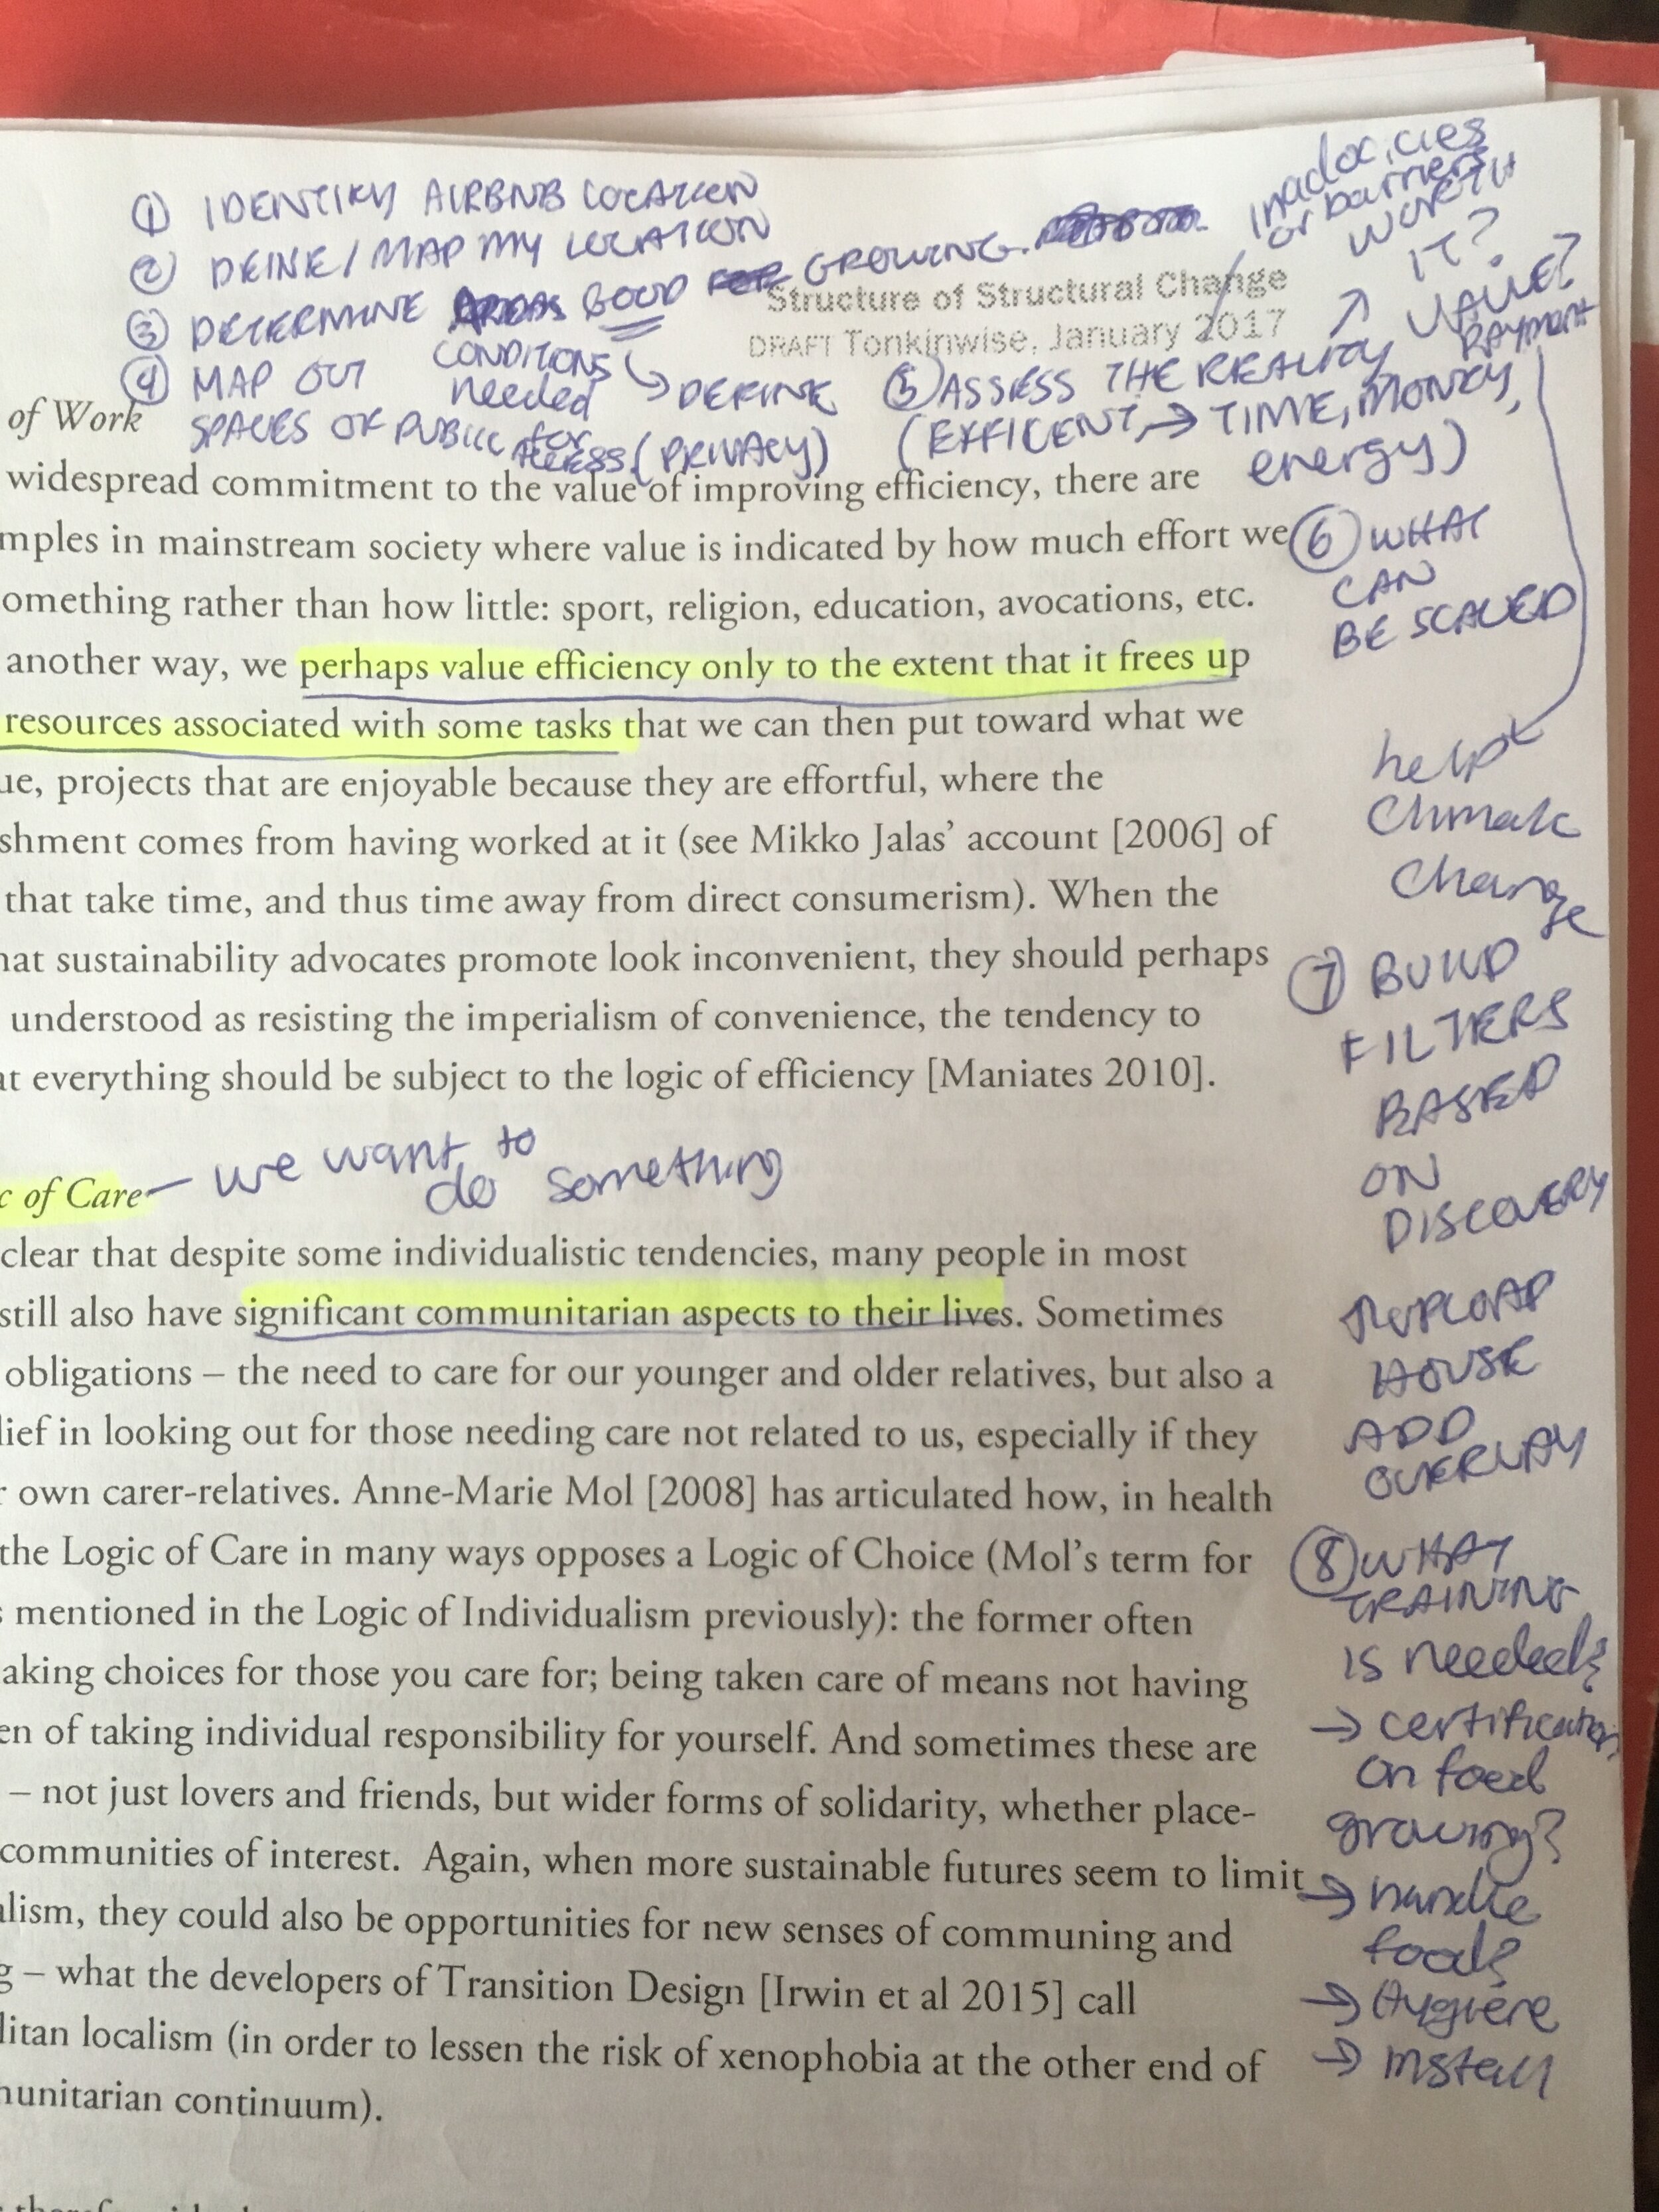 ① IDENTIFY AIRBNB LOCATION
② DEINE / MAP MY LOCATION
③ DETERMINE GOOD GROWING.
CONDITIONS
needed
for
↳ DEFINE
④ MAP OUT
SPACES OF PUBLIC ACCESS (PRIVACY)
⑤ ASSESS THE REALITY
(EFFICENT, → TIME, MONEY,
energy)
or barriers
WORTH
IT?
VALUE?
PAYMENT
Structure of Structural Change
DRAFT Tonkinwise, January 2017
of Work
widespread commitment to the value of improving efficiency, there are
mples in mainstream society where value is indicated by how much effort we
omething rather than how little: sport, religion, education, avocations, etc.
another way, we perhaps value efficiency only to the extent that it frees up
resources associated with some tasks that we can then put toward what we
ue, projects that are enjoyable because they are effortful, where the
shment comes from having worked at it (see Mikko Jalas’ account [2006] of
that take time, and thus time away from direct consumerism). When the
hat sustainability advocates promote look inconvenient, they should perhaps
understood as resisting the imperialism of convenience, the tendency to
at everything should be subject to the logic of efficiency [Maniates 2010].
c of Care – we want to
do something
clear that despite some individualistic tendencies, many people in most
still also have significant communitarian aspects to their lives. Sometimes
obligations – the need to care for our younger and older relatives, but also a
lief in looking out for those needing care not related to us, especially if they
r own carer-relatives. Anne-Marie Mol [2008] has articulated how, in health
the Logic of Care in many ways opposes a Logic of Choice (Mol’s term for
s mentioned in the Logic of Individualism previously): the former often
aking choices for those you care for; being taken care of means not having
en of taking individual responsibility for yourself. And sometimes these are
– not just lovers and friends, but wider forms of solidarity, whether place-
communities of interest. Again, when more sustainable futures seem to limit
alism, they could also be opportunities for new senses of communing and
g – what the developers of Transition Design [Irwin et al 2015] call
litan localism (in order to lessen the risk of xenophobia at the other end of
nunitarian continuum).
⑥ WHAT
CAN
BE SCALED
help
Climate
Change
⑦ BUILD
FILTERS
BASED
ON
DISCOVERY
HOUSE
ADD
OVERLAY
⑧ WHAT
TRAINING
is needed?
→ certification
on food
growing?
→ handle
food?
→ Hygiene
→ install